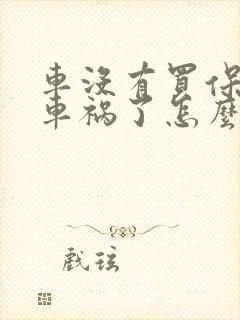 車沒有買保
車禍了怎麼
戲弦